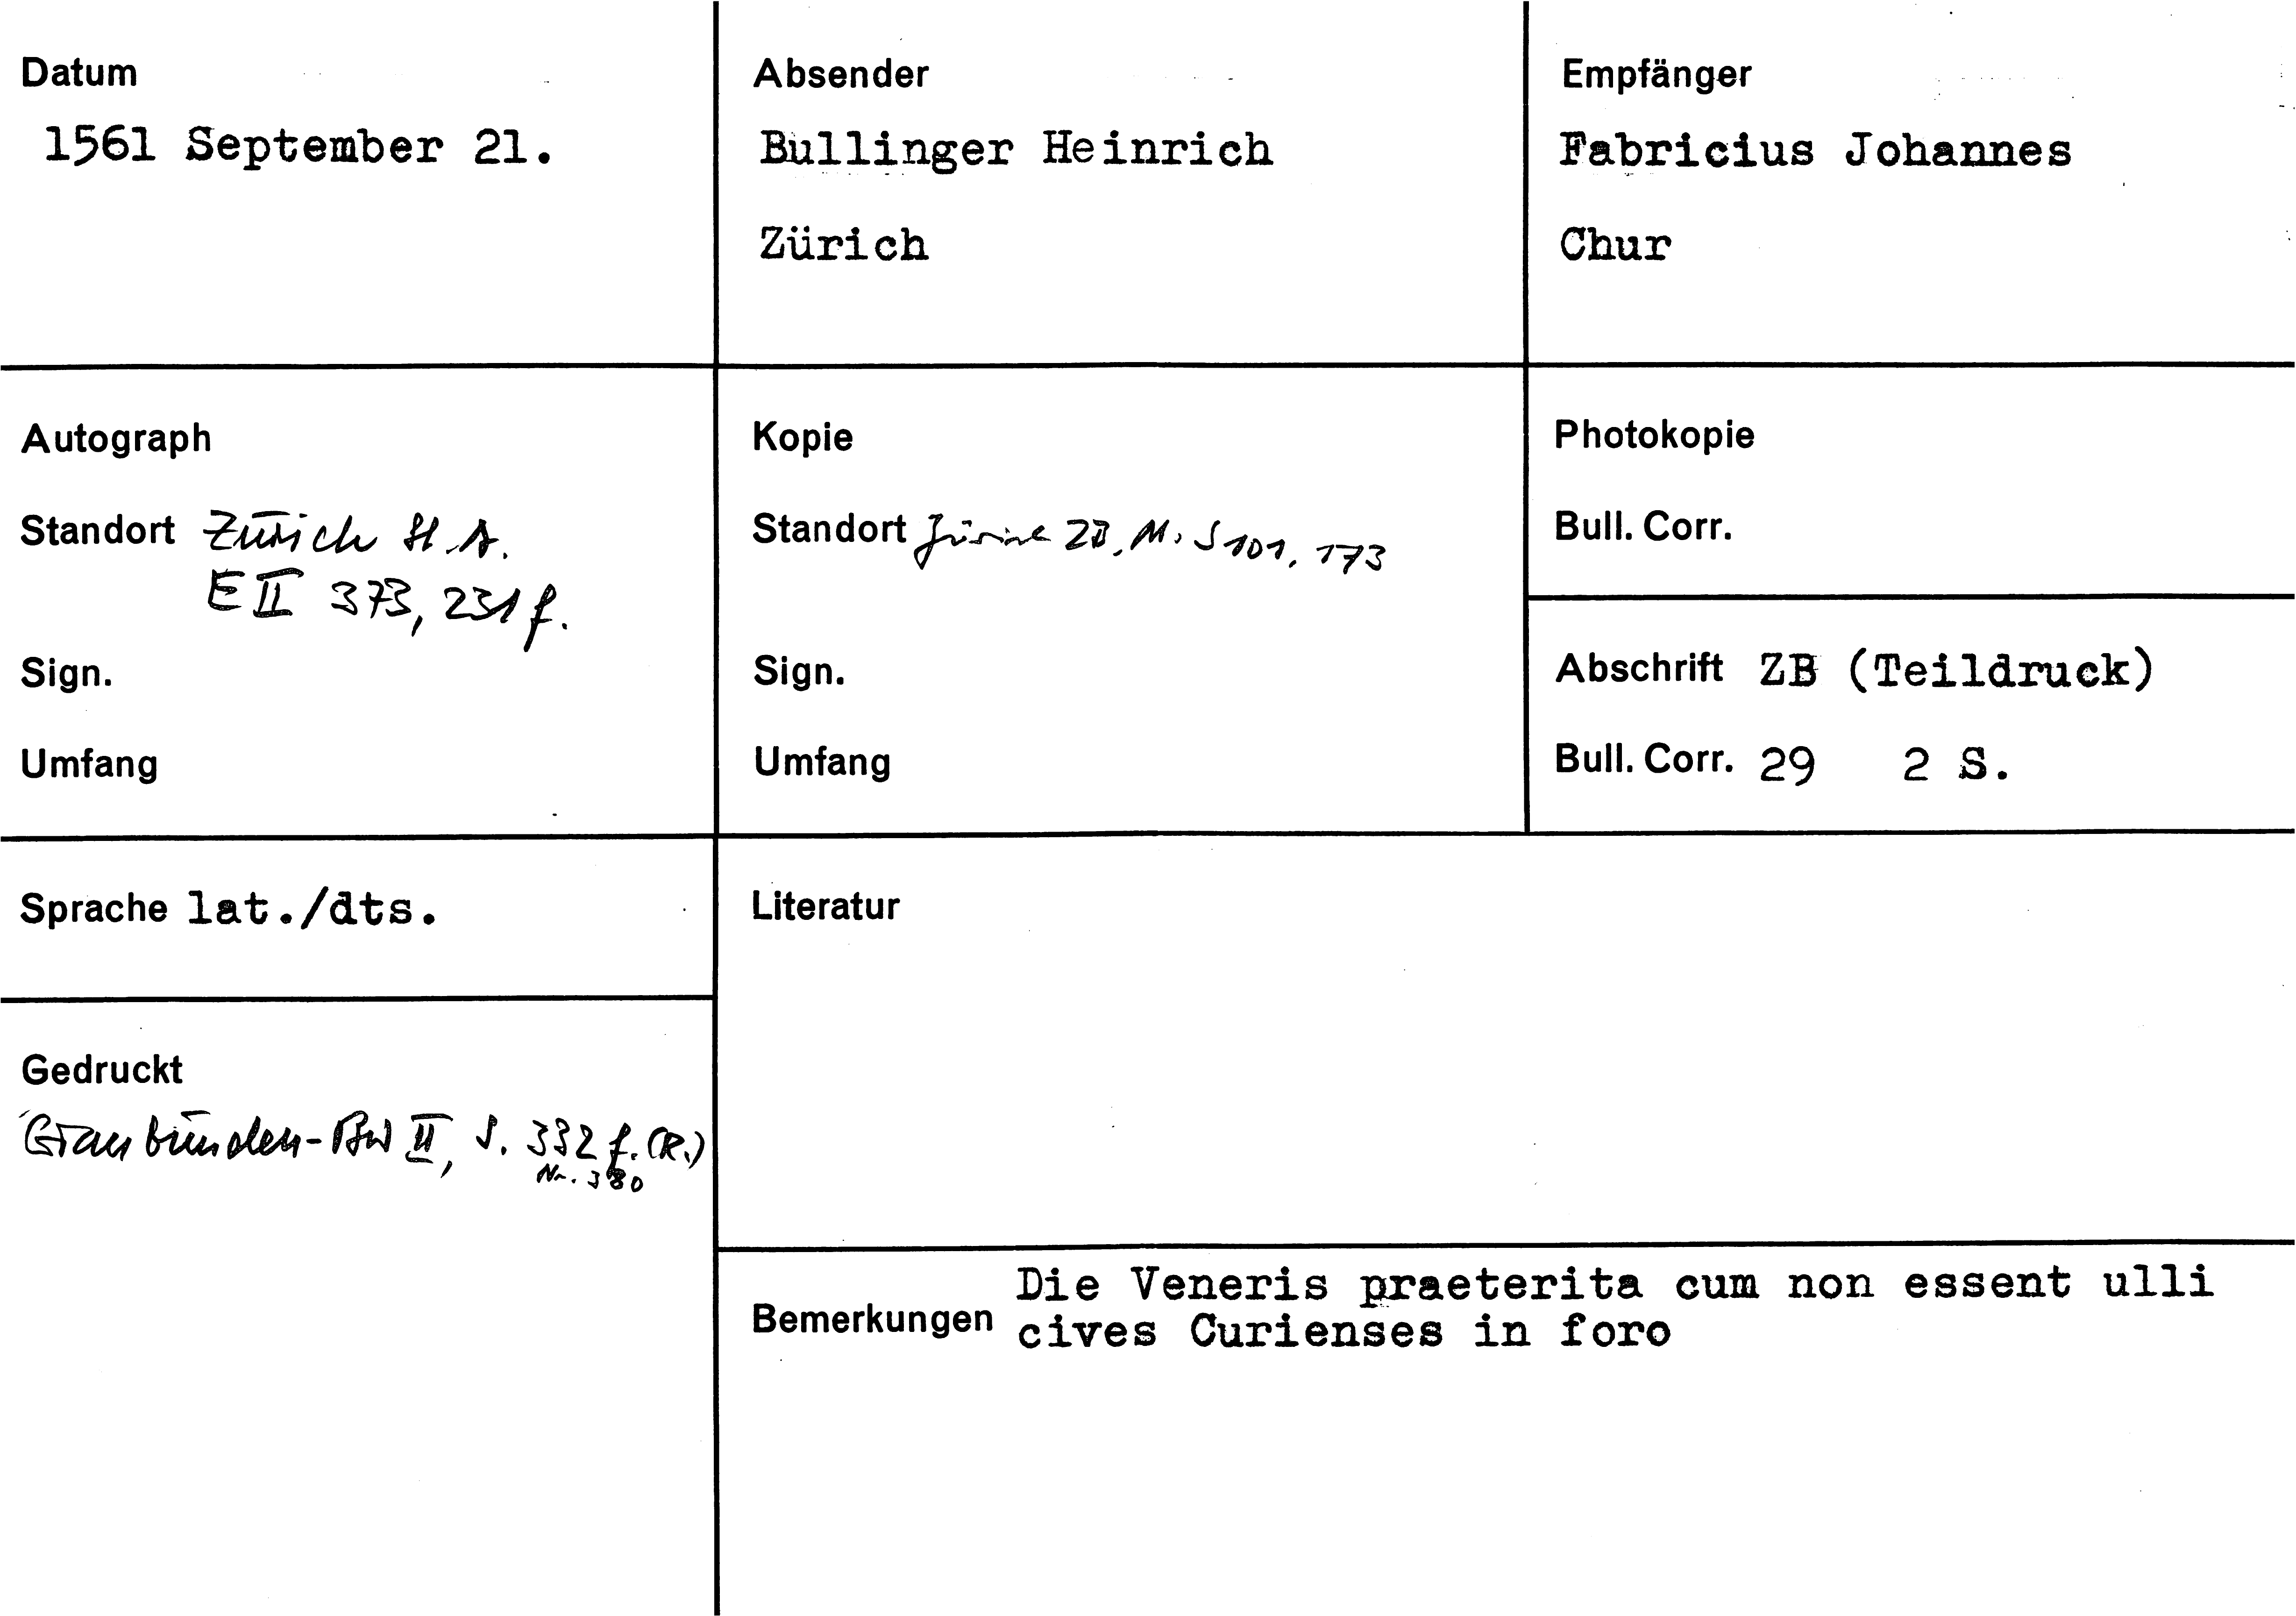 Datum
1561 September 21.
Absender
Bullinger Heinrich
Zürich
Empfänger
Fabricius Johannes
Chur
Autograph
Standort Zürich St.A.
E II 373, 231 f.
Sign.
Umfang
Kopie
Standort Zürich ZB, Ms S 101, 173
Sign.
Umfang
Photokopie
Bull. Corr.
Abschrift ZB (Teildruck)
Bull. Corr. 29 2 S.
Sprache lat./dts.
Literatur
Gedruckt
Graubünden-BW II, S. 332 f. (R.)
Nr. 380
Bemerkungen Die Veneris praeterita cum non essent ulli
cives Curienses in foro